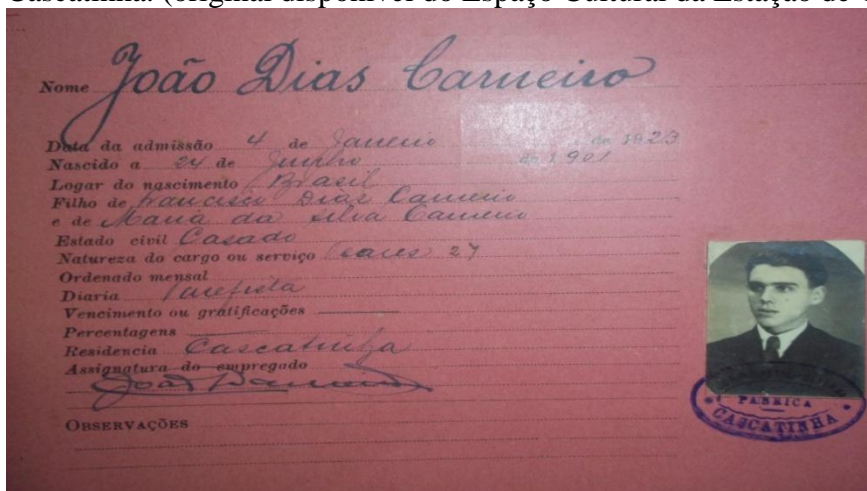 Cascatinha. (original disponível do Espaço Cultural da Estação de
Nome João Dias Carneiro
Data da admissão 4 de Janeiro de 1923
Nascido a 24 de Junho de 1901
Logar do nascimento Brasil
Filho de Francisco Dias Carneiro
e de Maria da Silva Carneiro
Estado civil Casado
Natureza do cargo ou serviço Teares 27
Ordenado mensal
Diaria Tarefista
Vencimento ou gratificações
Percentagens
Residencia Cascatinha
Assignatura do empregado
João Carneiro
OBSERVAÇÕES
FABRICA
CASCATINHA